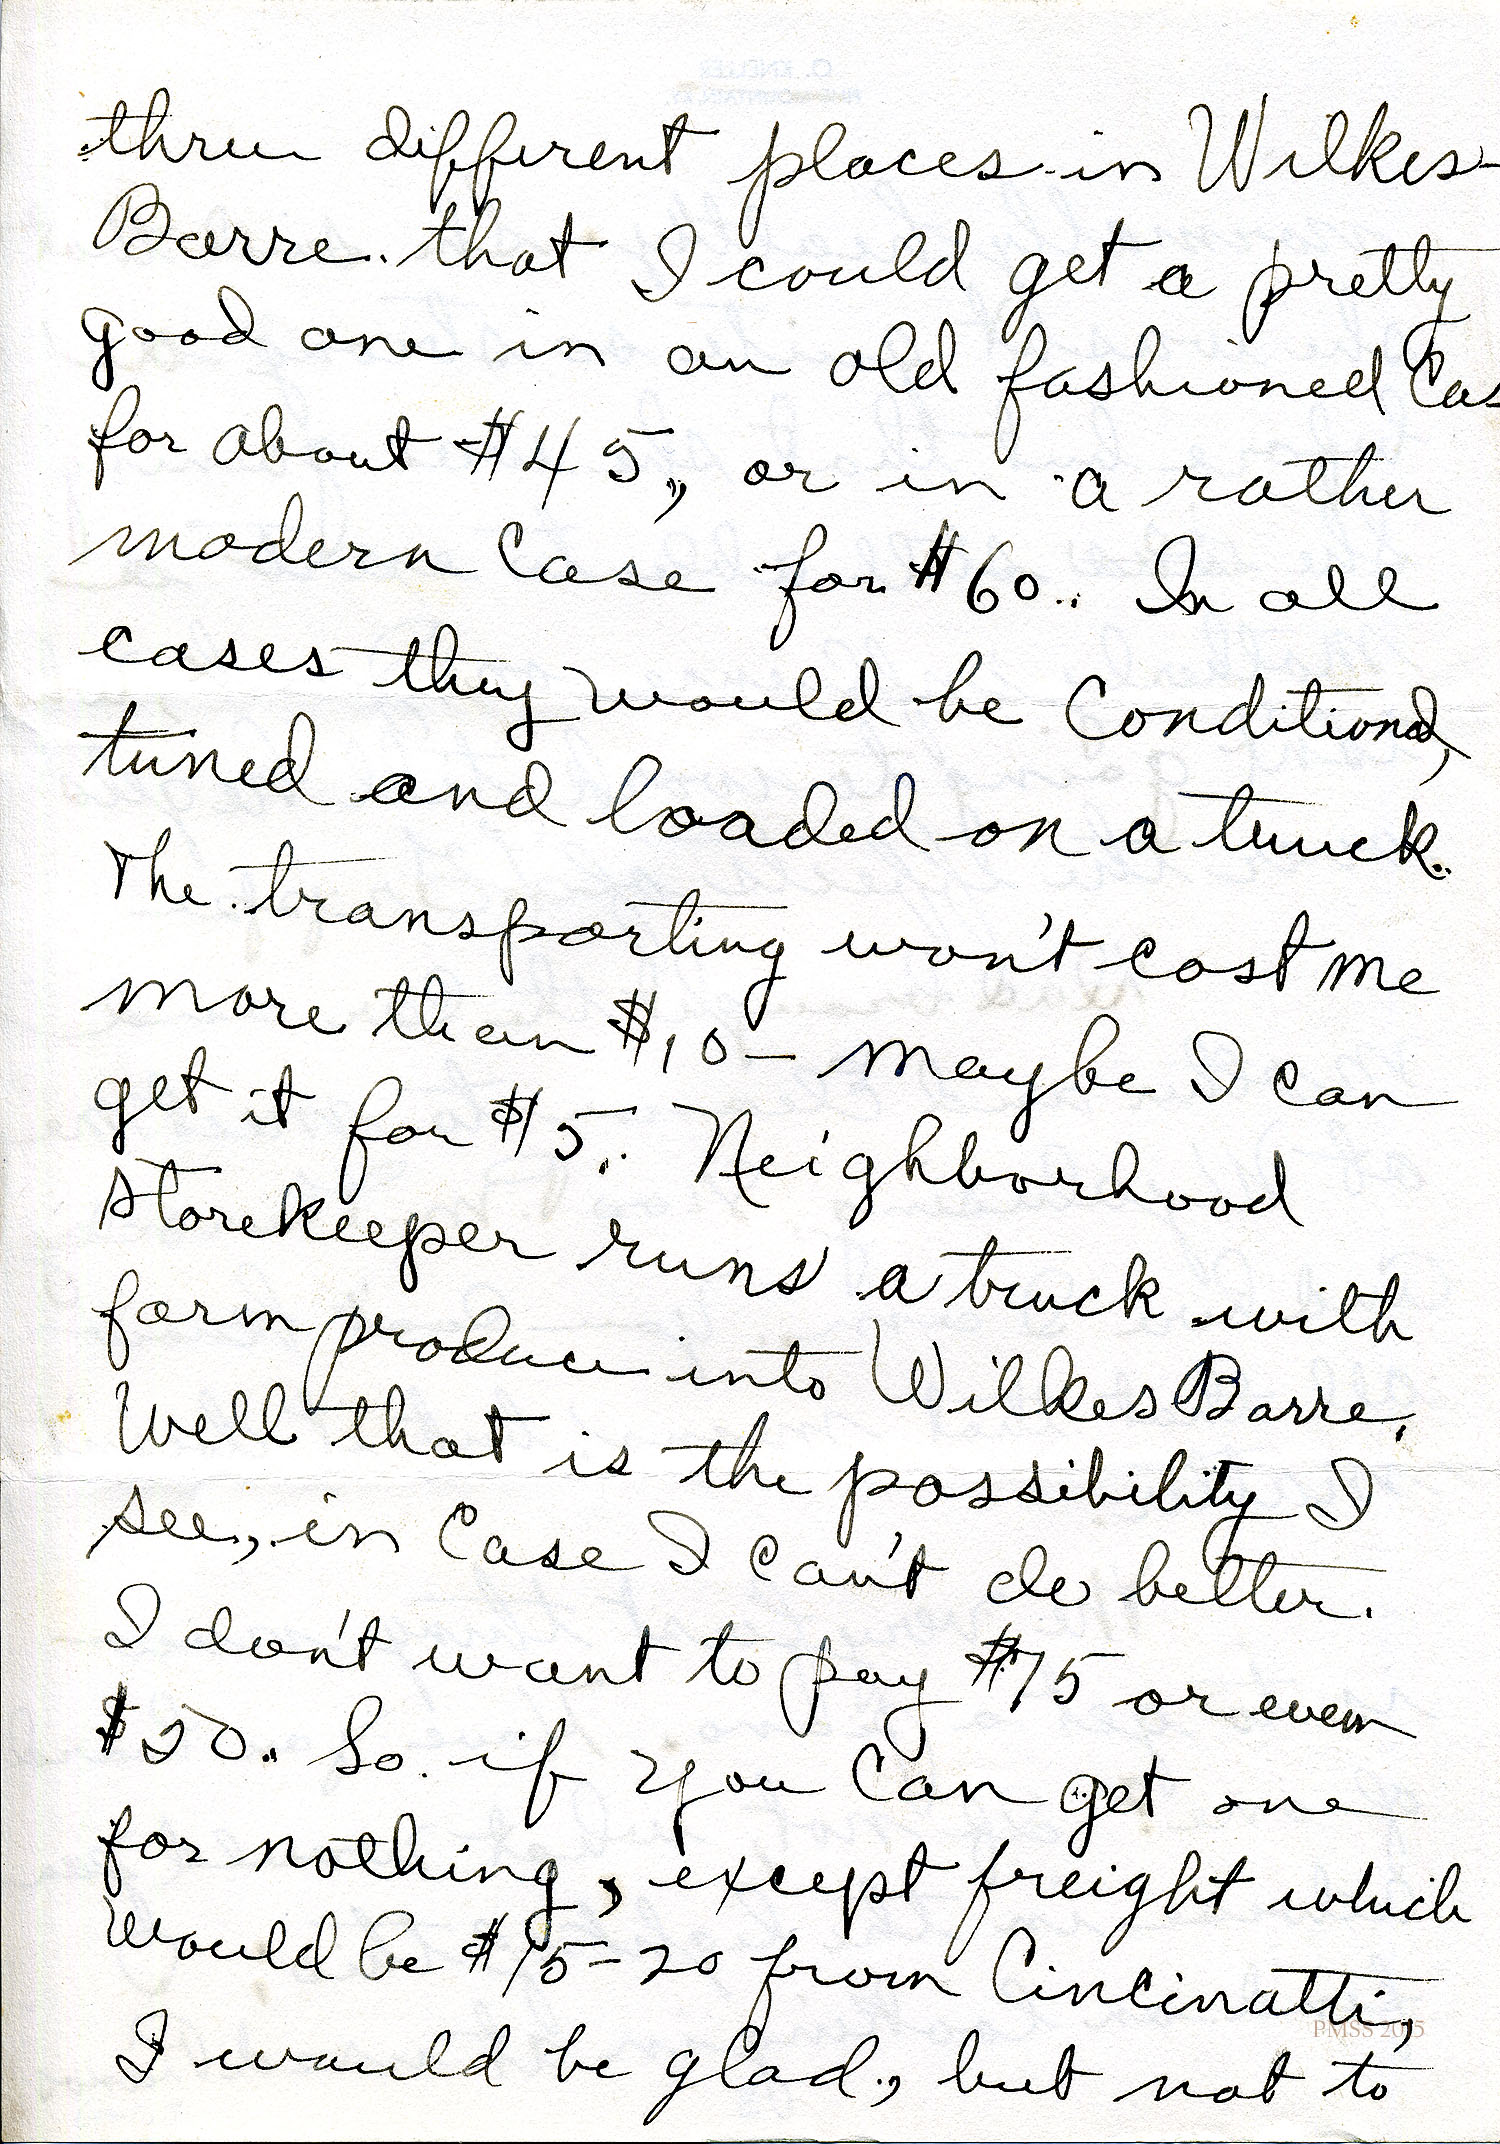 three different places in Wilkes-
Barre that I could get a pretty
good one in an old fashioned Cas
for about $45, or in a rather
modern Case for $60. In all
cases they would be Conditioned,
tuned and loaded on a truck.
The transporting won't cost me
more than $10 – maybe I can
get it for $5. Neighborhood
storekeeper runs a truck with
farm produce into Wilkes Barre.
Well that is the possibility I
see, in Case I can't do better.
I don't want to pay $75 or even
$50. So if you Can get one
for nothing, except freight which
would be $15-20 from Cincinatti,
PMSS 2015
I would be glad, but not to